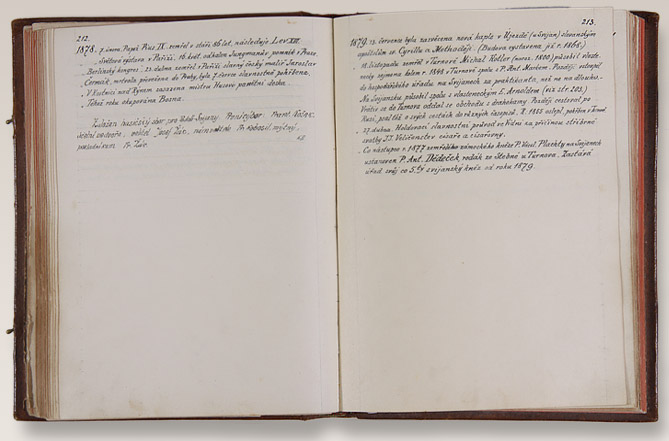 212.
1878. 7. února. Papež Pius IX. zemřel v stáří 86 let, následuje Lev XIII.
„ Světová výstava v Paříži. 16. květ. odhalen Jungmannův pomník v Praze.
„ Berlínský kongres. 23. dubna zemřel v Paříži slavný český malíř Jaroslav
Čermák, mrtvola převežena do Prahy, byla 7. července slavnostně pohřbena.
V Kostnici nad Rýnem zasazena mistru Husovi pamětní deska.
Téhož roku okupována Bosna.
Založen hasičský sbor pro Svijany
Josef Žďár, náměstek
213.
1879. 13. července byla zasvěcena nová kaple v Újezdě (u Svijan) slovanským
apoštolům sv. Cyrillu a Methoději. (Budova vystavena již r. 1868.)
18. listopadu zemřel v Turnově Michal Kotler (naroz. 1800.) působil vlaste-
necky zejmena kolem r. 1848 v Turnově spolu s P. Ant. Markem. Později vstoupil
do hospodářského úřadu na Svijanech za praktikanta, než ne na dlouho.
Na Svijansku působil spolu s vlasteneckým E. Arnoldem (viz str. 203.)
Vrátiv se do Turnova oddal se obchodu s drahokamy. Později cestoval po
Rusi, psal též o svých cestách do různých časopisů. R. 1865 oslepl, pohřben v Turnově.
27. dubna. Holdovací slavnostní průvod ve Vídni na příčinu stříbrné
svatby JJ. Veličenstev císaře a císařovny.
„ Co nástupce r. 1877 zemřelého zámeckého kněze P. Václ. Plachty na Svijanech
ustanoven P. Ant. Dědeček rodák ze Stebna u Turnova. Zastává
úřad svůj co 5.tý svijanský kněz od roku 1879.